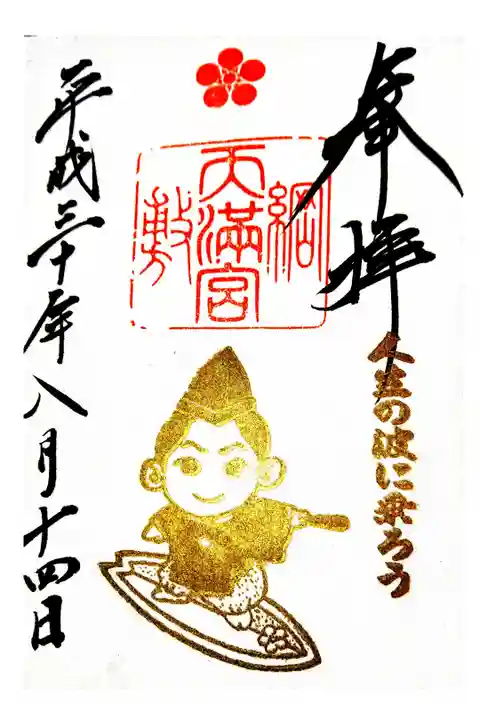 奉拝
綱敷天満宮
人生の波に乗ろう
平成三十年八月十四日